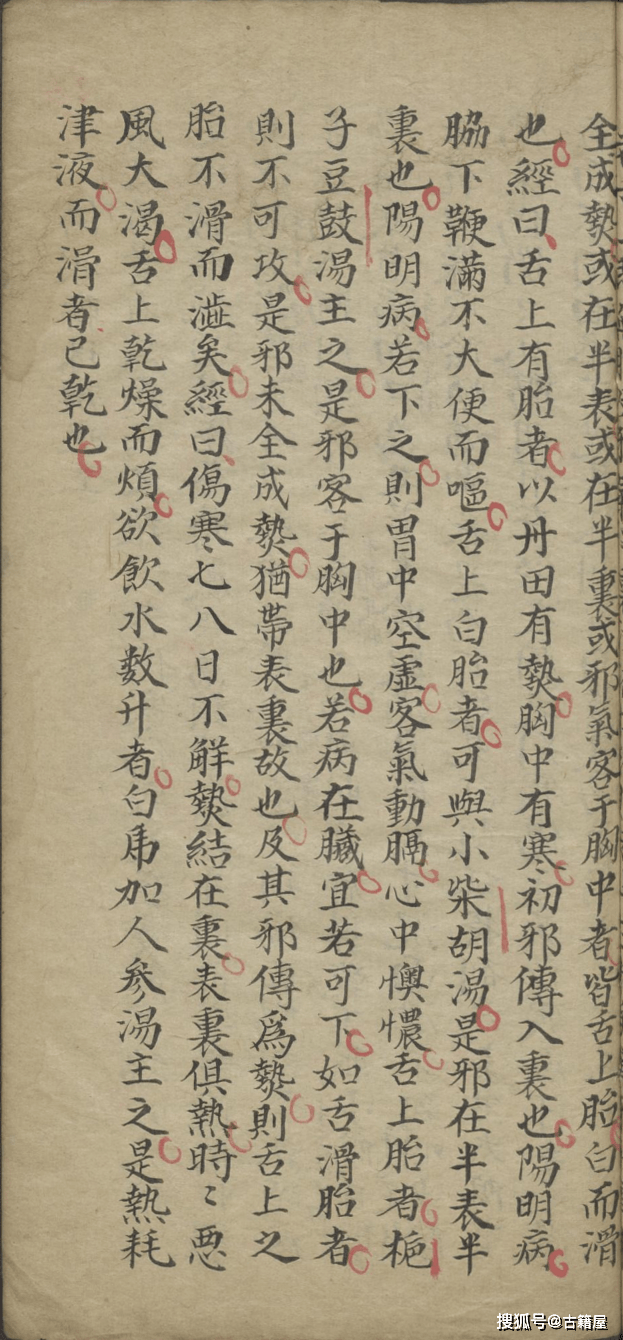 全成𤍠或在半表或在半裏或邪氣客于胸中者皆舌上胎白而滑
也經曰舌上有胎者以丹田有𤍠胸中有寒初邪傳入裏也陽明病
脇下鞕滿不大便而嘔舌上白胎者可與小柴胡湯是邪在半表半
裏也陽明病若下之則胃中空虛客氣動膈心中懊憹舌上胎者梔
子豆鼓湯主之是邪客于胸中也若病在臟宜若可下如舌滑胎者
則不可攻是邪未全成𤍠猶帶表裏故也及其邪傳爲𤍠則舌上之
胎不滑而澁矣經曰傷寒七八日不解𤍠結在裏表裏俱熱時〻惡
風大渴舌上乾燥而煩欲飲水数升者白虎加人參湯主之是熱耗
津液而滑者已乾也
搜狐号@古籍屋